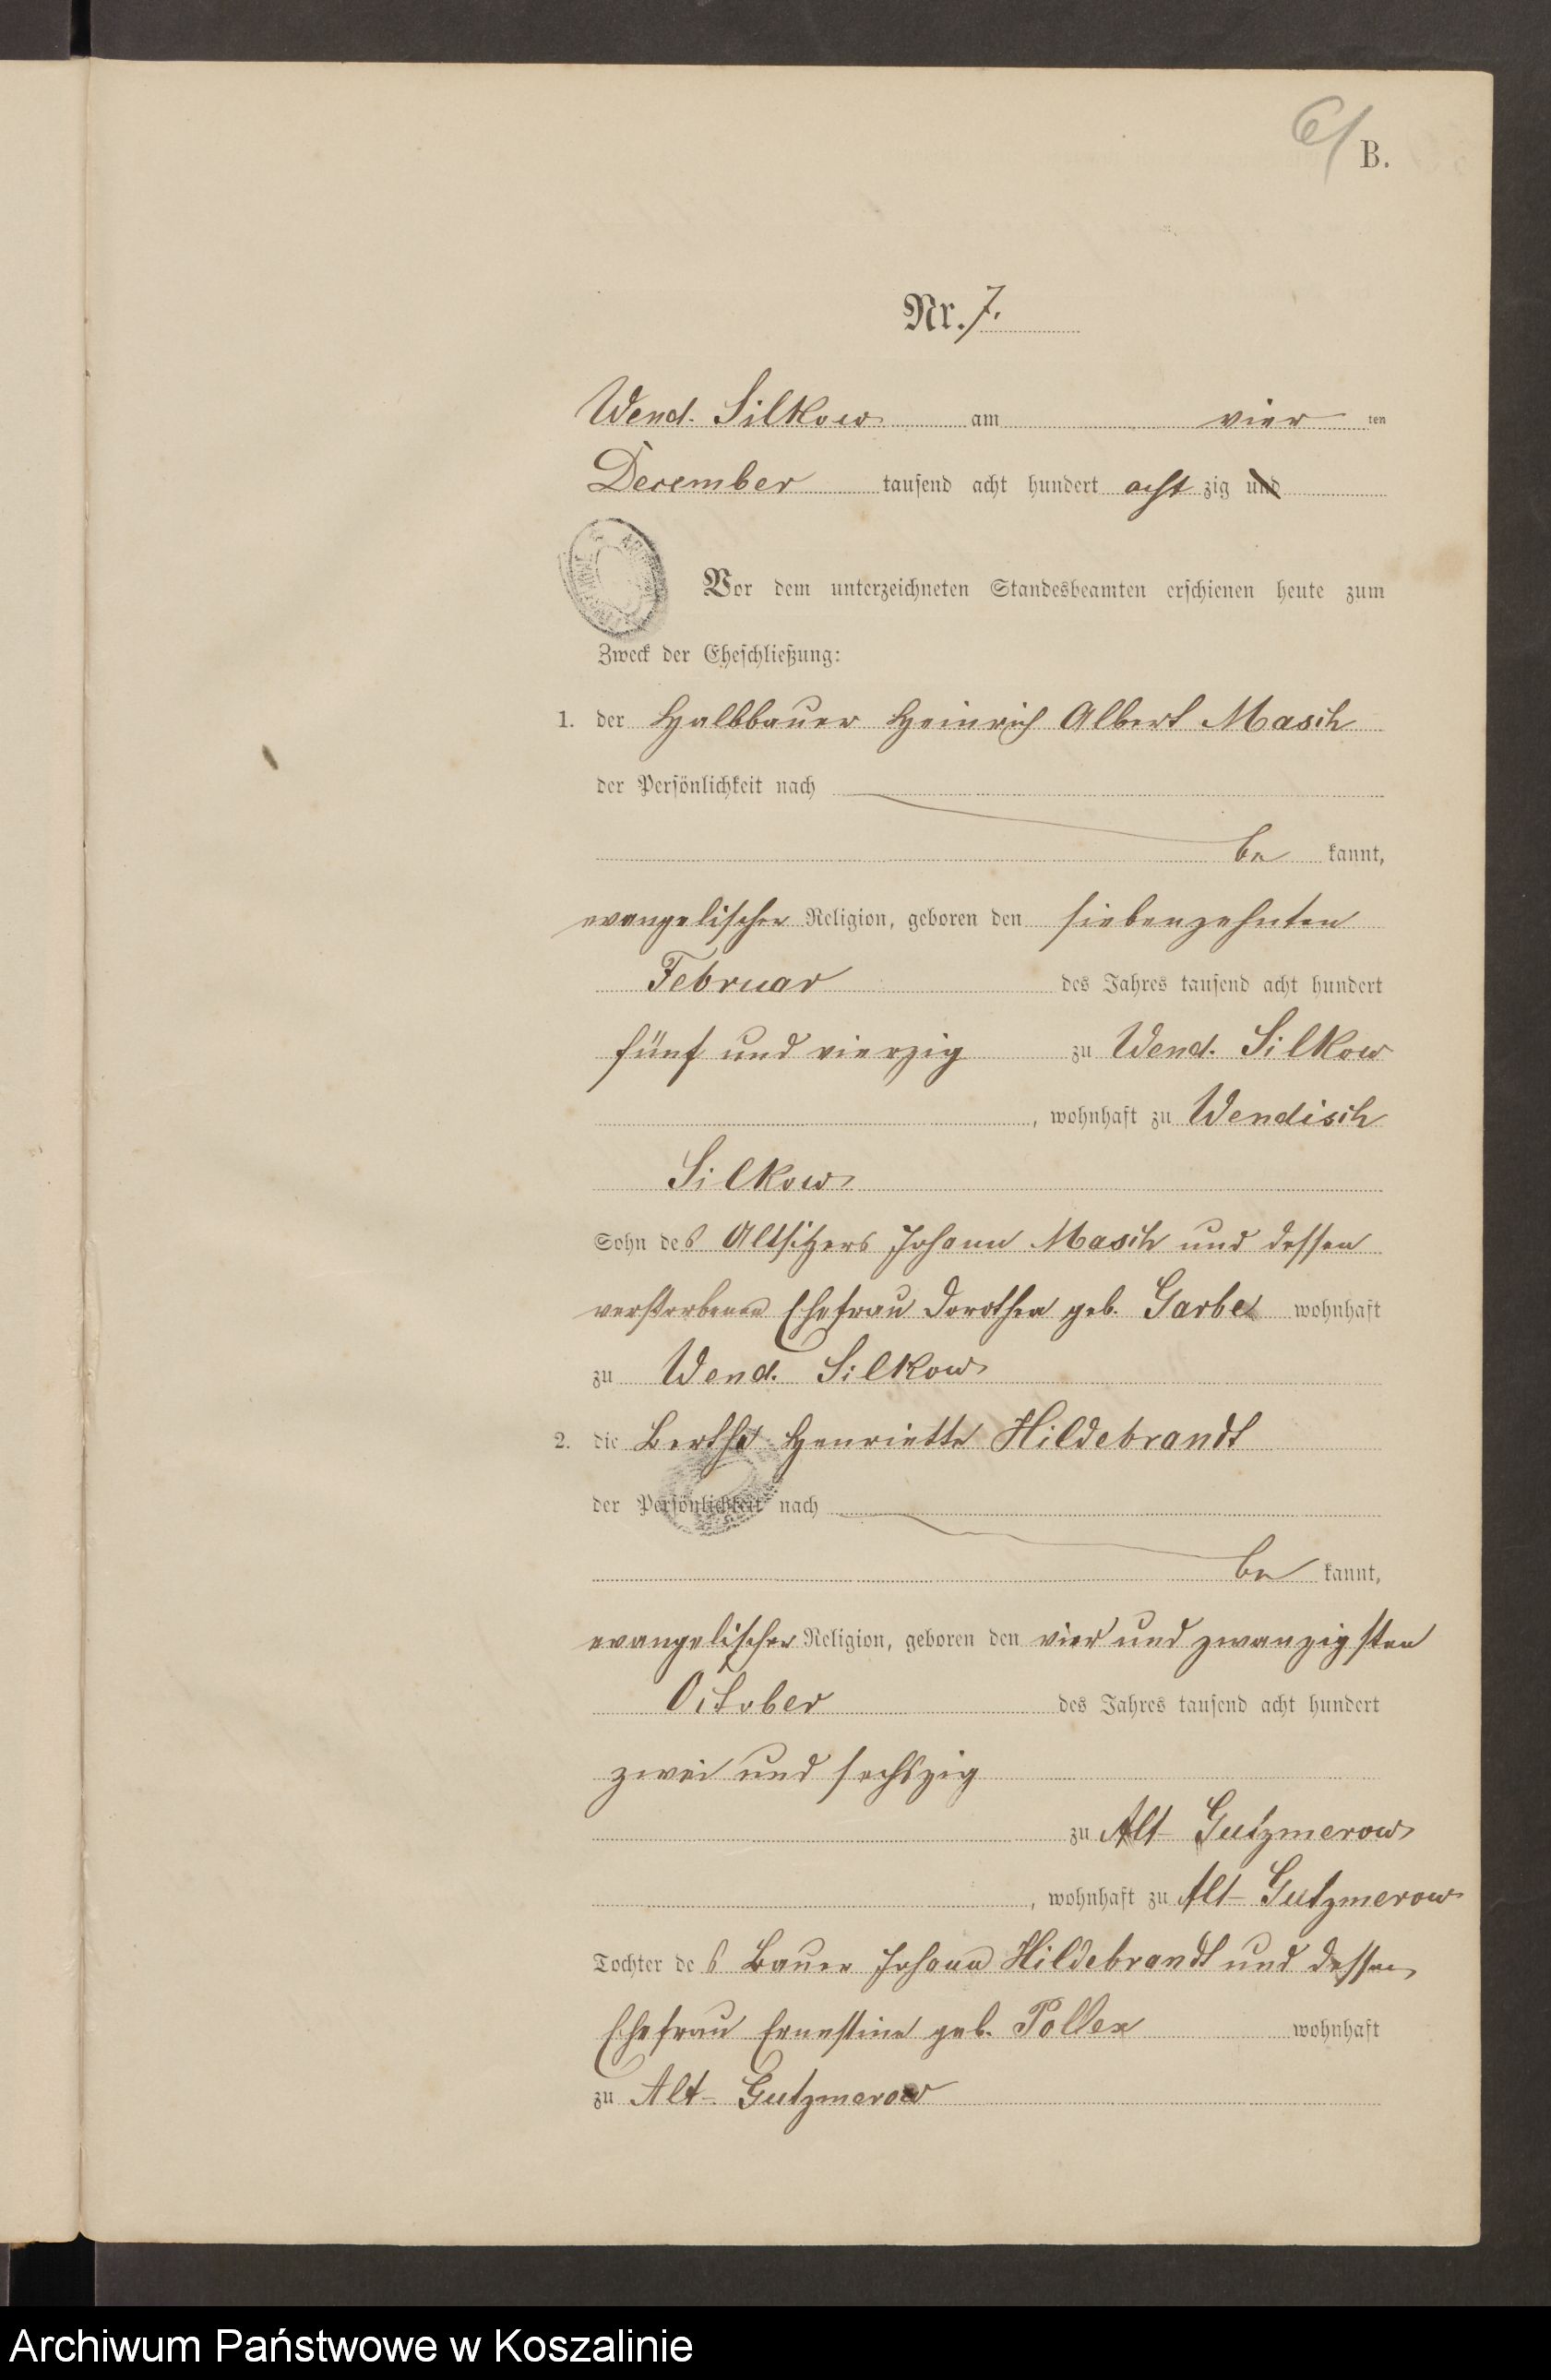 6/
B.
Nr. 7.
Wend. Silkow am vier ten
December tausend acht hundert acht zig und
Vor dem unterzeichneten Standesbeamten erschienen heute zum
Zweck der Eheschließung:
1. der Halbbauer Heinrich Albert Masch
der Persönlichkeit nach
be kannt,
evangelischer Religion, geboren den siebenzehnten
Februar des Jahres tausend acht hundert
fünf und vierzig zu Wend. Silkow
, wohnhaft zu Wendisch
Silkow
Sohn des Altsitzers Johann Masch und dessen
verstorbenen Ehefrau Dorothea geb. Garbe wohnhaft
zu Wend. Silkow
2. die Bertha Henriette Hildebrandt
der Persönlichkeit nach
be kannt,
evangelischer Religion, geboren den vier und zwanzigsten
October des Jahres tausend acht hundert
zwei und sechszig
zu Alt-Gutzmerow
, wohnhaft zu Alt-Gutzmerow
Tochter des Bauer Johann Hildebrandt und dessen
Ehefrau Ernestine geb. Pollex wohnhaft
zu Alt-Gutzmerow
Archiwum Państwowe w Koszalinie